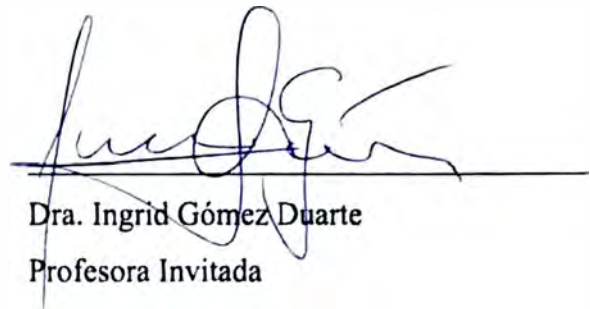 Dra. Ingrid Gómez Duarte
Profesora Invitada